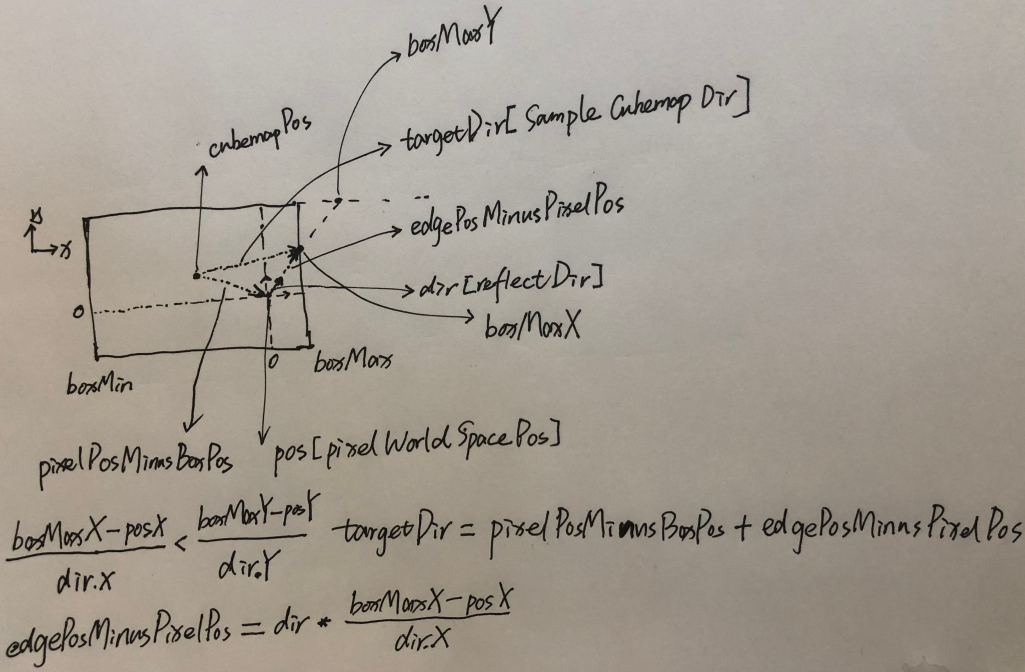 boxMaxY
cubemapPos
targetDir[Sample Cubemap Dir]
y
x
edgePosMinusPixelPos
dir[reflectDir]
boxMaxX
0
0
boxMin
boxMax
pixelPosMinusBoxPos
pos[pixel World Space Pos]
boxMaxX-posX / dir.X < boxMaxY-posY / dir.Y
targetDir = pixelPosMinusBoxPos + edgePosMinusPixelPos
edgePosMinusPixelPos = dir * boxMaxX-posX / dir.X